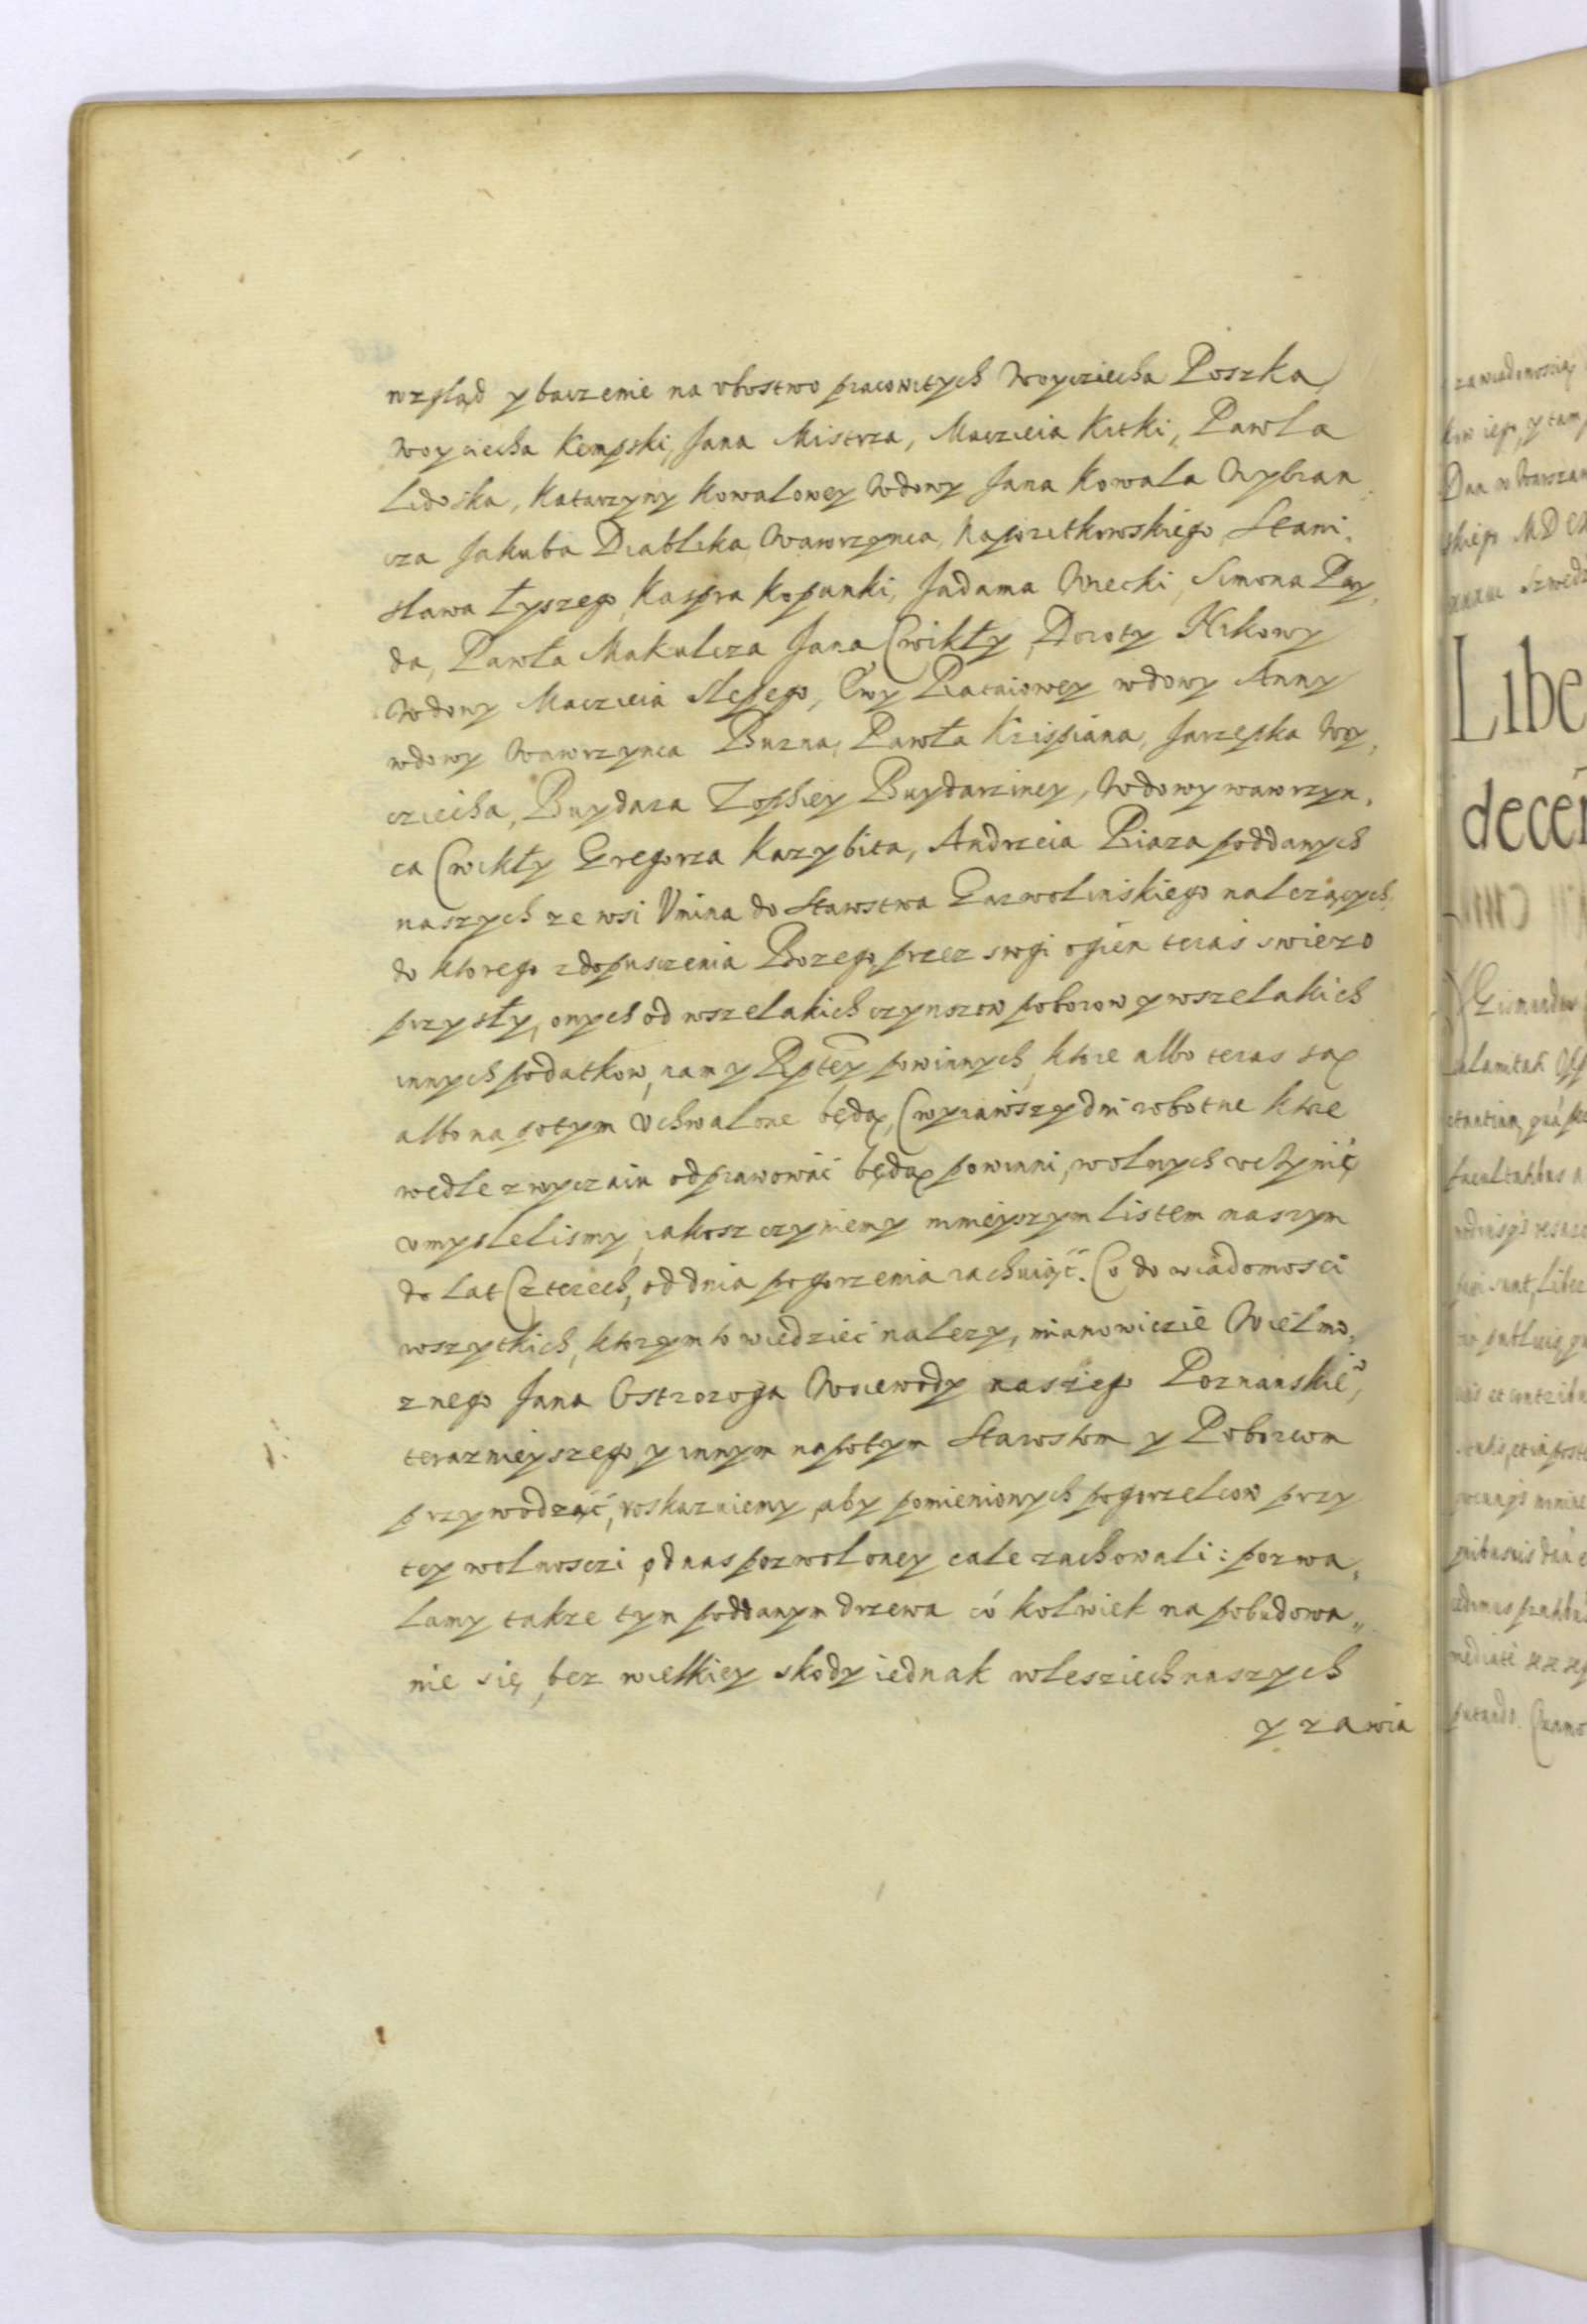 wzgląd y baczenie na vbostwo pracowitych Woycziecha Poszka,
Woyciecha Kempski, Jana Mistrza, Maczieia Kitki, Pawla
Lidoska, Katarzyny Kowalowey Wdowy Jana Kowala Wybran
cza Jakuba Diablika, Wawrzynca, Naporitkowskiego, Stani,
sława Łyszego, Kaspra Kopanki, Jadama Wnecki, Simona Pay,
da, Pawła Makulcza Jana Cwikły, Doroty Kikowy
Wdowy Maczieia Slepego, Ewy Rataiowey wdowy Anny
wdowy Wawrzynca Buzna, Pawła Krispiana, Jarzepka Woy,
cziecha, Buydara Zophiey Buydarziney, Wdowy wawrzyn,
ca Cwikły Gregorza Kazybita, Andrzeia Piaza poddanych
naszych ze wsi Vnina do Starostwa Garwolinskiego należących,
do ktorego z dopuszczenia Bozego przez srogi ogien teraś swiezo
przyszły, onych od wszelakich czynszow poborow y wszelakich
innych podatkow, nam y Rptey powinnych, ktore albo teras są
albo napotym vchwalone będą, (wyiawszy dni robotne ktore
wedle zwyczaiu odprawować będą powinni, wolnych vczynić
vmyslelismy, iakosz czyniemy ninieyszym listem naszym
do lat Czterech, od dnia pogorzenia rachuiąć. Co do wiadomosci
wszytkich, ktorym to wiedzieć nalezy, mianowiczie Wielmo,
znego Jana Ostroroga Woiewody naszego Poznanskieo,
terazneyszego, y innym napotym Starostom y Poborcom
przywodząć, roskazuiemy, aby pomienionych pogorzelcow przy
tey wolnosczi, od nas pozwoloney cale zachowali: pozwa,
lamy takze tym poddanym drzewa có kolwiek na pobudowa„
nie się, bez wielkiey skody iednak w lesziech naszych
y zawia